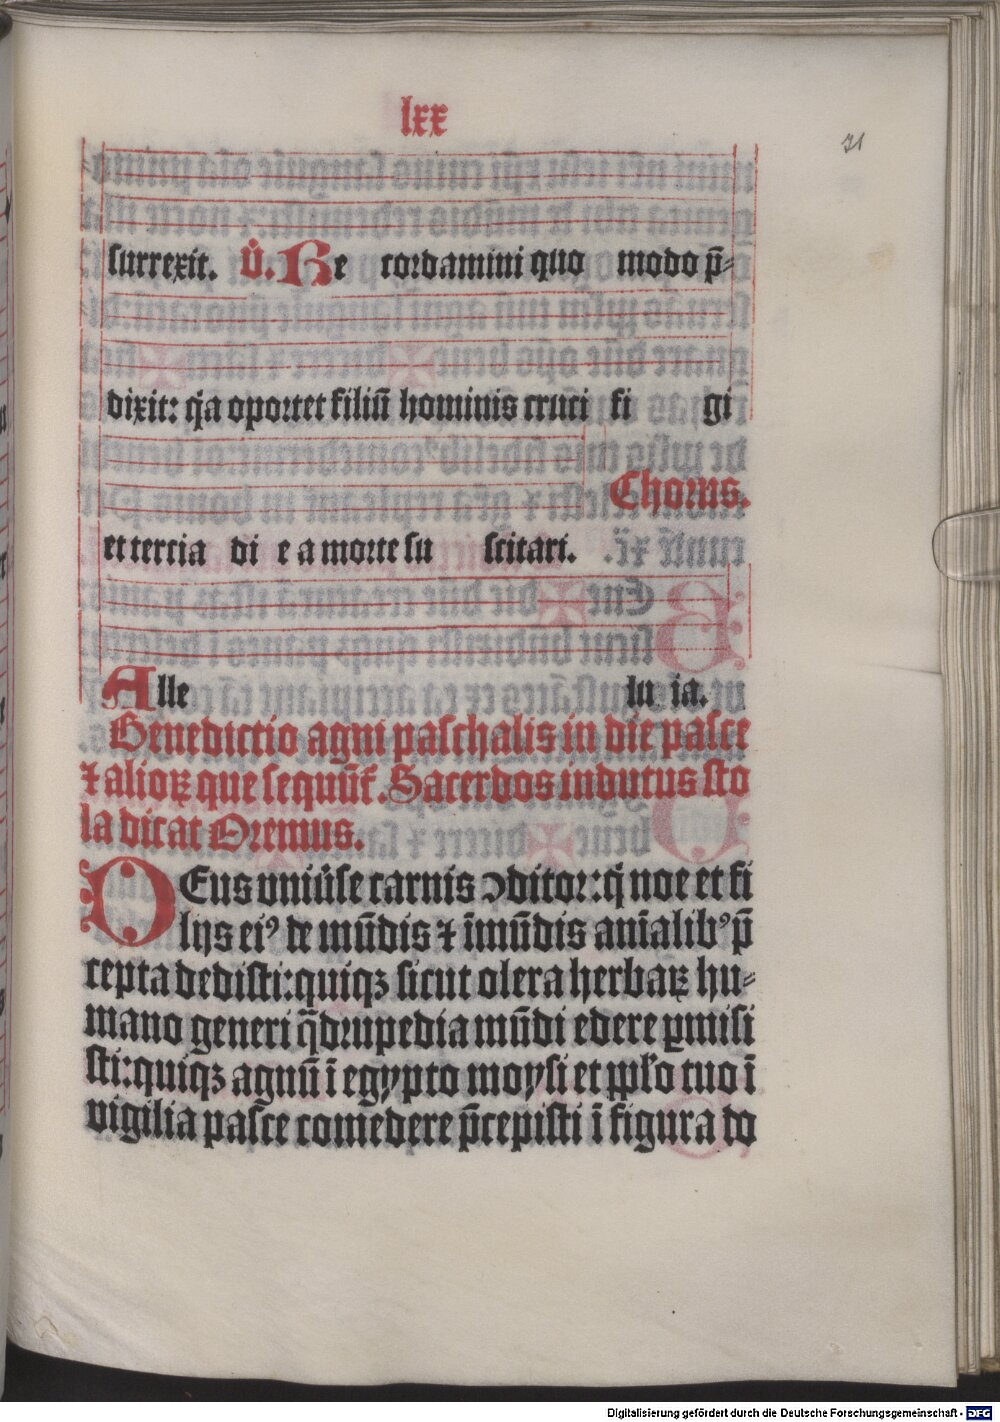 lxx
71
surrexit. V̊. Re cordamini quo modo p̄⸗
dixit: q̇a oportet filiū hominis cruci fi gi
Chorus.
et tercia di e a morte su scitari.
Alle lu ia.
Benedictio agni paschalis in die pasce
⁊ alioꝝ que sequūt᷑. Sacerdos indutus sto
la dicat Oremus.
DEus vniũse carnis ↄditor: q̇ noe et fi
lijs eiꝰ de mūdis ⁊ īmūdis aīalibꝰ p̄
cepta dedisti: quiqꝫ sicut olera herbaꝝ hu⸗
mano generi q̄drupedia mūdi edere ꝑmisi
sti: quiqꝫ agnū ī egypto moysi et pplo tuo ī
vigilia pasce comedere p̄cepisti ī figura do
Digitalisierung gefördert durch die Deutsche Forschungsgemeinschaft - DFG